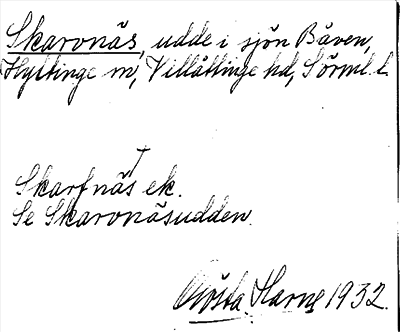 Skarvnäs, udde i sjön Båven,
Hyltinge sn, Villåttinge hd, Sörml. l.
Skarfnäs ek.
Se Skarvnäsudden.
Gösta Harne 1932.